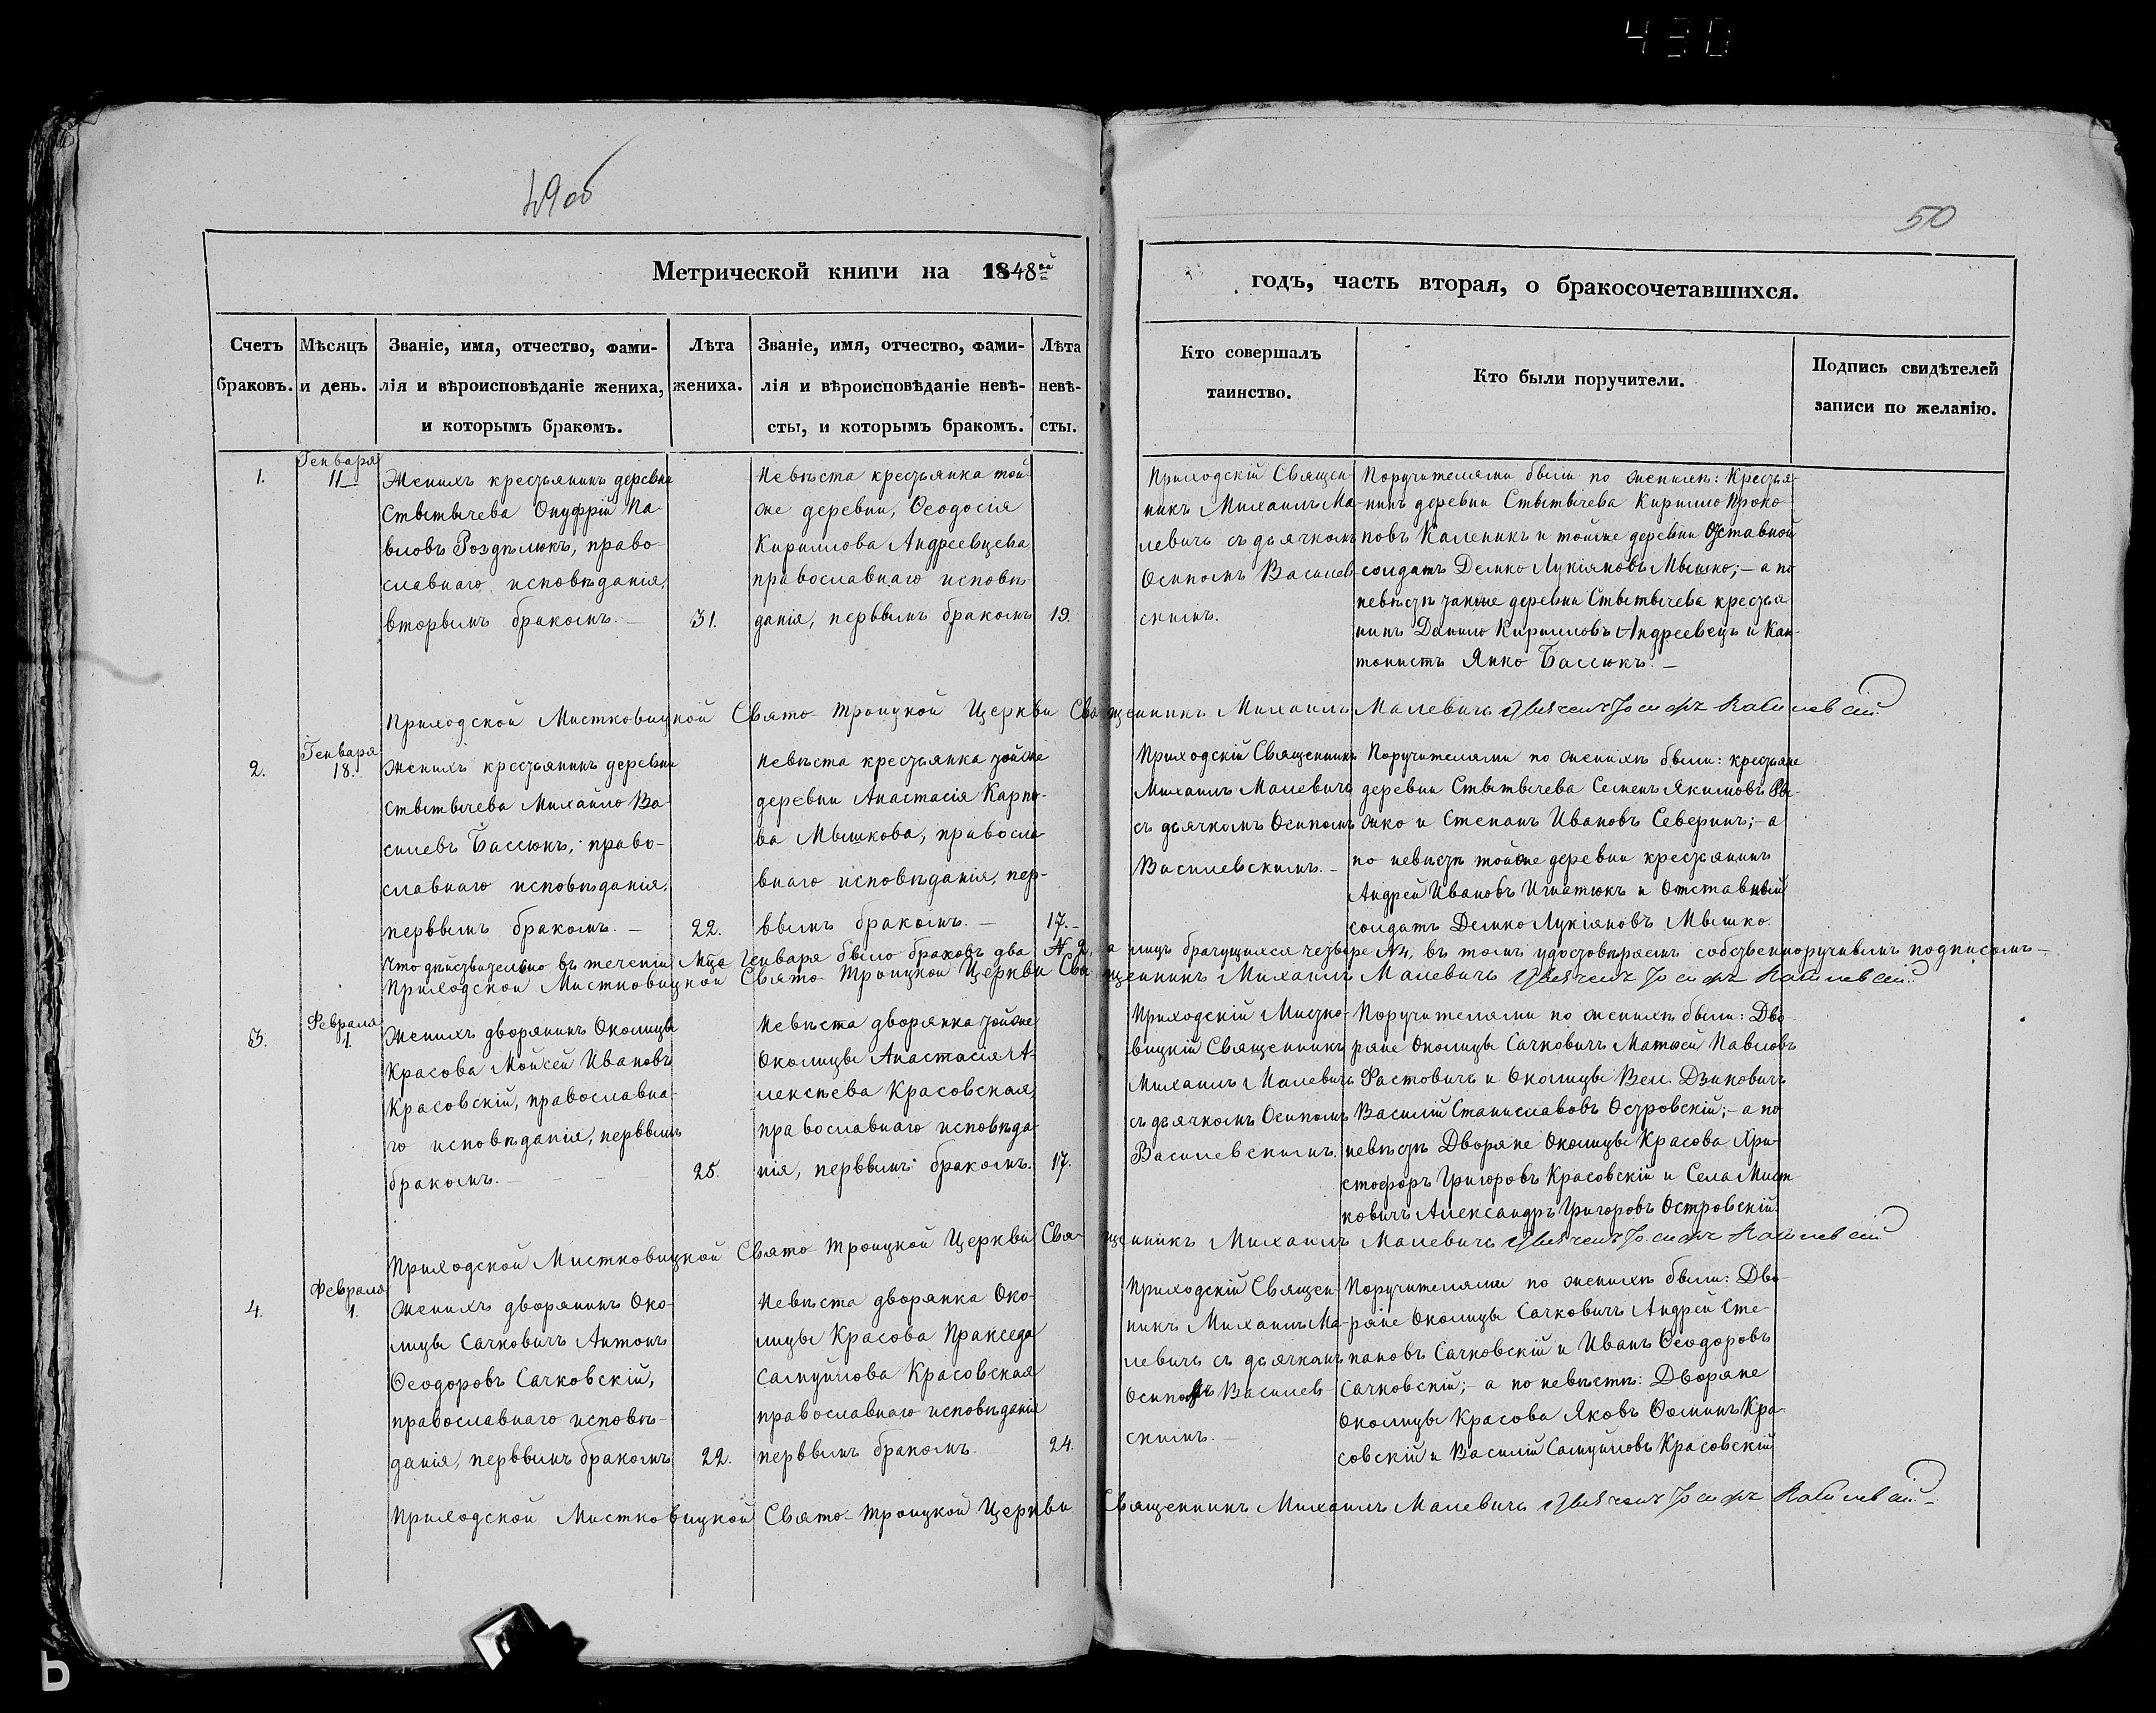 430
49об
50
Метрической книги на 1848ой
годъ, часть вторая, о бракосочетавшихся.
Счетъ
браковъ.
Мѣсяцъ
и день.
Званіе, имя, отчество, фами-
лія и вѣроисповѣданіе жениха,
и которымъ бракомъ.
Лѣта
жениха.
Званіе, имя, отчество, фами-
лія и вѣроисповѣданіе невѣ-
сты, и которымъ бракомъ.
Лѣта
невѣ-
сты.
Кто совершалъ
таинство.
Кто были поручители.
Подпись свидѣтелей
записи по желанію.
1.
Генваря
11
Женихъ крестьянинъ деревни
Стытычева Онуфрій Па-
вловъ Роздѣлюкъ, право-
славнаго исповѣданія,
вторымъ бракомъ. —
31.
Невѣста крестьянка той-
же деревни, Ѳеодосія
Кириллова Андреевцева
православнаго исповѣ-
данія, первымъ бракомъ
19.
Приходскій Священ-
никъ Михаилъ Ма-
левичъ съ дьячкомъ
Осипомъ Василев-
скимъ.
Поручителями были по женихѣ: Крестья-
нинъ деревни Стытычева Кирилло Проко-
повъ Каленикъ и тойже деревни Отставной
солдатъ Демко Лукіяновъ Мышко; — а по
невѣстѣ также деревни Стытычева крестья-
нинъ Данило Кирилловъ Андреевецъ и Кан-
тонистъ Янко Басюкъ. —
Приходской Мистковицкой Свято-Троицкой Церкви Священникъ Михаилъ Малевичъ
2.
Генваря
18.
Женихъ крестьянинъ деревни
Стытычева Михайло Ва-
силевъ Басюкъ, право-
славнаго исповѣданія,
первымъ бракомъ. —
22.
Невѣста крестьянка тойже
деревни Анастасія Карпо-
ва Мышкова, правосла-
внаго исповѣданія, пер-
вымъ бракомъ. —
17. —
Приходскій Священникъ
Михаилъ Малевичъ
съ дьячкомъ Осипомъ
Василевскимъ. —
Поручителями по женихѣ были: крестьяне
деревни Стытычева Семенъ Якимовъ Ры-
жко и Степанъ Ивановъ Северинъ; — а
по невѣстѣ тойже деревни крестьянинъ
Андрей Ивановъ Игнатюкъ и Отставный
солдатъ Демко Лукіяновъ Мышко.
Что дѣйствительно въ теченіи Мца Генваря было браковъ два № 2, а лицъ брачущихся четыре № 4, въ томъ удостовѣряемъ собственноручнымъ подписомъ —
Приходской Мистковицкой Свято-Троицкой Церкви Священникъ Михаилъ Малевичъ
3.
Февраля
1.
Женихъ дворянинъ Околицы
Красова Мойсей Ивановъ
Красовскій, православна-
го исповѣданія, первымъ
бракомъ. —
25.
Невѣста дворянка тойже
Околицы Анастасія А-
лексѣева Красовская,
православнаго исповѣда-
нія, первымъ бракомъ.
17.
Приходскій Мистко-
вицкій Священникъ
Михаилъ Малевичъ
съ дьячкомъ Осипомъ
Василевскимъ.
Поручителями по женихѣ были: Дво-
ряне Околицы Сачковичъ Матѳей Павловъ
Фастовичъ и Околицы Вел. Дзиковичъ
Василій Станиславовъ Островскій; — а по
невѣстѣ Дворяне Околицы Красова Хри-
стофоръ Григоровъ Красовскій и Села Мист-
ковичъ Александръ Григоровъ Островскій.
Приходской Мистковицкой Свято-Троицкой Церкви Священникъ Михаилъ Малевичъ
4.
Февраля
1.
Женихъ дворянинъ Око-
лицы Сачковичъ Антонъ
Ѳеодоровъ Сачковскій,
православнаго исповѣ-
данія, первымъ бракомъ
22.
Невѣста дворянка Око-
лицы Красова Пракседа
Самуйлова Красовская
православнаго исповѣданія
первымъ бракомъ.
24.
Приходскій Священ-
никъ Михаилъ Ма-
левичъ съ дьячкомъ
Осипомъ Василев-
скимъ. —
Поручителями по женихѣ были: Дво-
ряне Околицы Сачковичъ Андрей Сте-
пановъ Сачковскій и Иванъ Ѳеодоровъ
Сачковскій; — а по невѣстѣ: Дворяне
Околицы Красова Яковъ Ѳоминъ Кра-
совскій и Василій Самуйловъ Красовскій
Приходской Мистковицкой Свято-Троицкой Церкви Священникъ Михаилъ Малевичъ